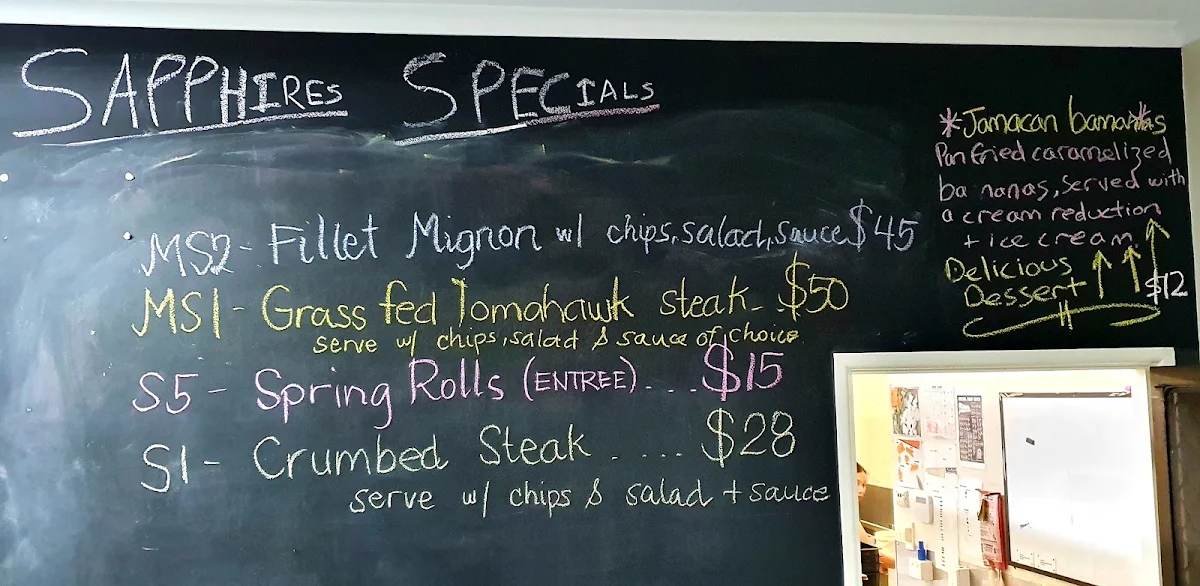 SAPPHIRES SPECIALS
MS2 - Fillet Mignon w/ chips, salad, sauce $45
MS1 - Grass fed Tomohawk steak - . $50
serve w/ chips, salad & sauce of choice
S5 - Spring Rolls (ENTREE) . . . . $15
S1 - Crumbed Steak . . . . . $28
serve w/ chips & salad + sauce
*Jamacan bamanas*
Pan fried caramelized
bananas, served with
a cream reduction
+ ice cream.
Delicious
Dessert ↑ ↑ ↑ $12